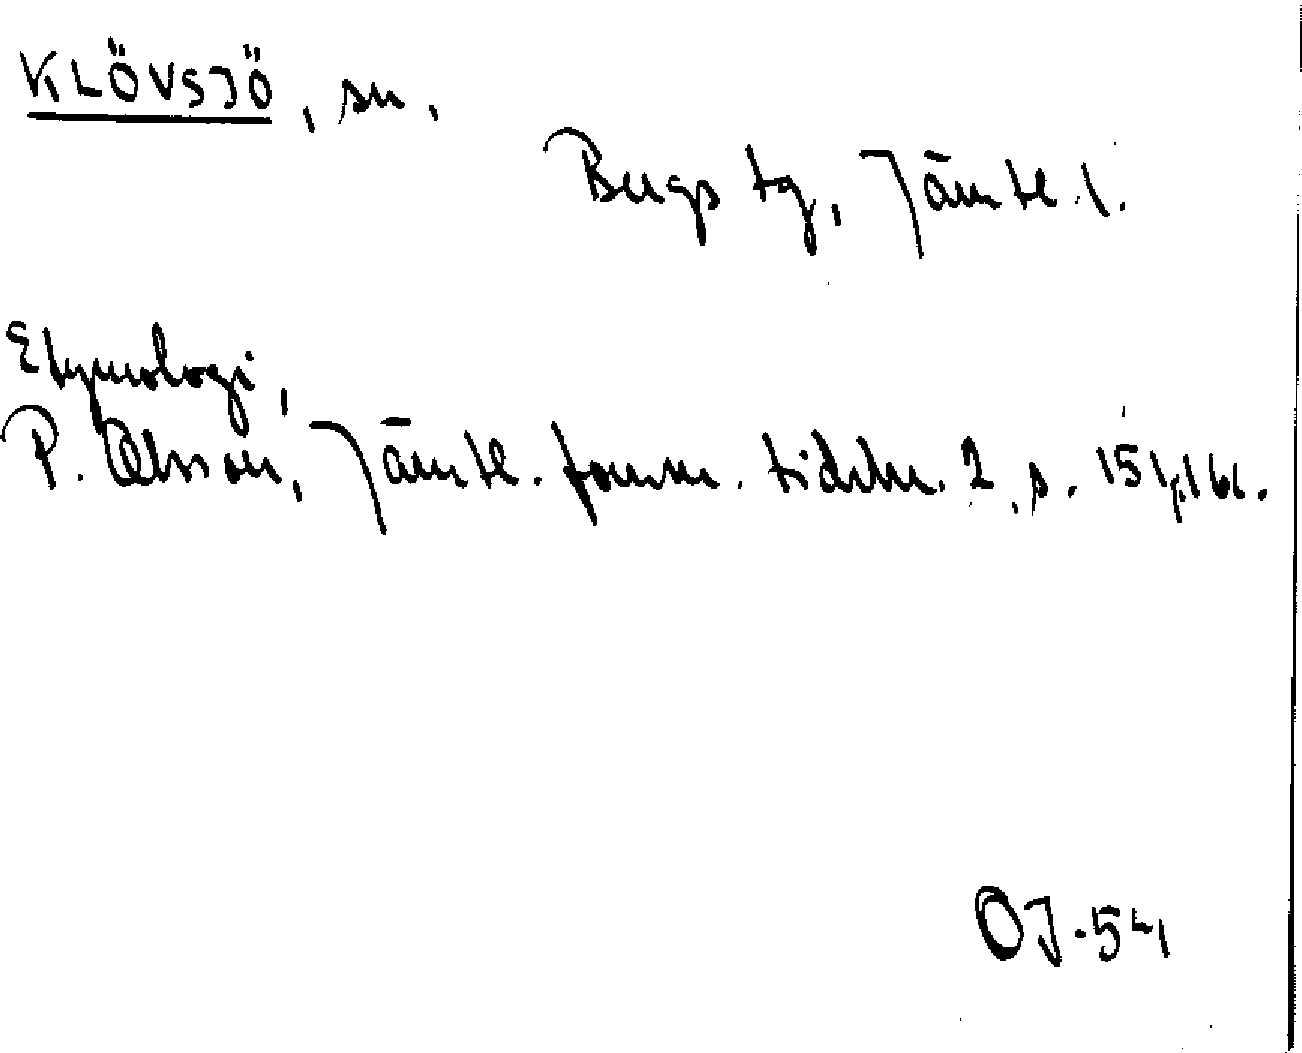 KLÖVSJÖ, sn,
Bergs tg, Jämtl. l.
Etymologi,
P. Olsson, Jämtl. fornm. tidskr. 2, s. 151, 161.
OJ-54